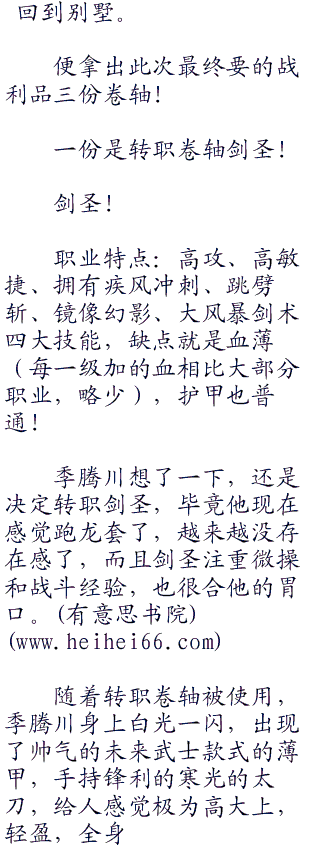 回到别墅。
便拿出此次最终要的战
利品三份卷轴！
一份是转职卷轴剑圣！
剑圣！
职业特点：高攻、高敏
捷、拥有疾风冲刺、跳劈
斩、镜像幻影、大风暴剑术
四大技能，缺点就是血薄
（每一级加的血相比大部分
职业，略少），护甲也普
通！
季腾川想了一下，还是
决定转职剑圣，毕竟他现在
感觉跑龙套了，越来越没存
在感了，而且剑圣注重微操
和战斗经验，也很合他的胃
口。(有意思书院)
(www.heihei66.com)
随着转职卷轴被使用，
季腾川身上白光一闪，出现
了帅气的未来武士款式的薄
甲，手持锋利的寒光的太
刀，给人感觉极为高大上，
轻盈，全身